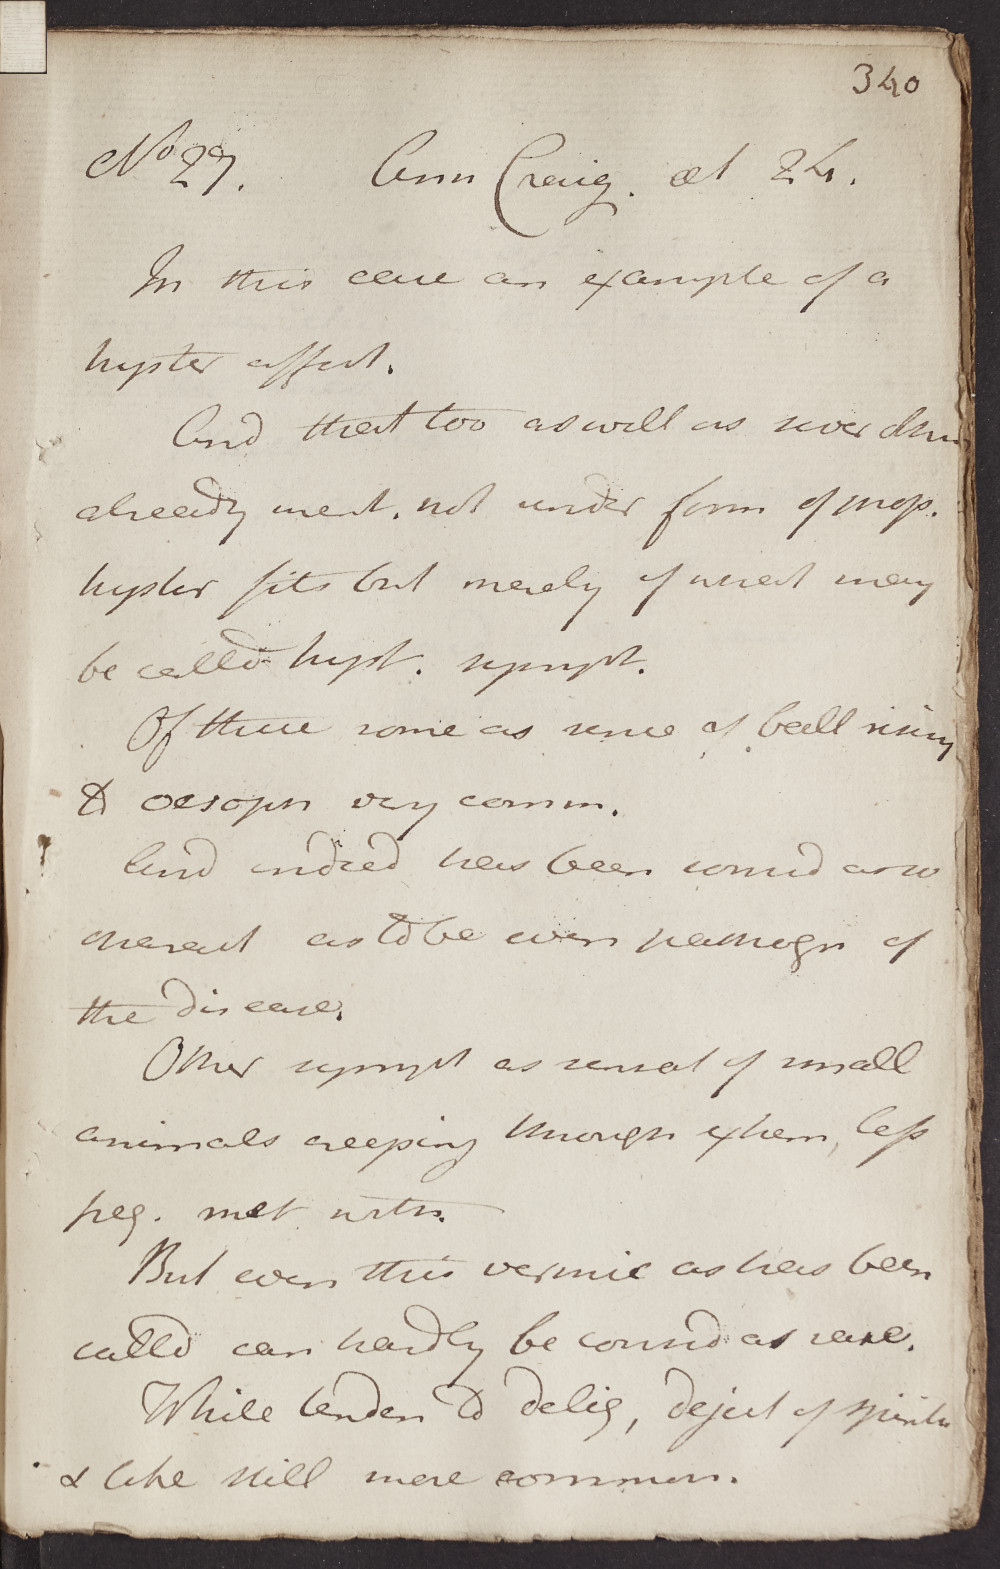 340
No 27. Ann Craig. æt 24.
In this case an example of a
hyster affect.
And that too as well as sever
already ment. not under form of prop.
hyster fits but merely of what may
be calld hyst. sympt.
Of these some as sense of ball rising
to oesoph very comm.
And indeed has been considd as so
charact as to be even pathogn of
the disease.
Other sympt as sensat of small
animals creeping through extrem, less
freq. met with.
But even this vermic as has been
calld can hardly be considd as rare.
While tenden to deliq, deject of spirits
& like still more common.